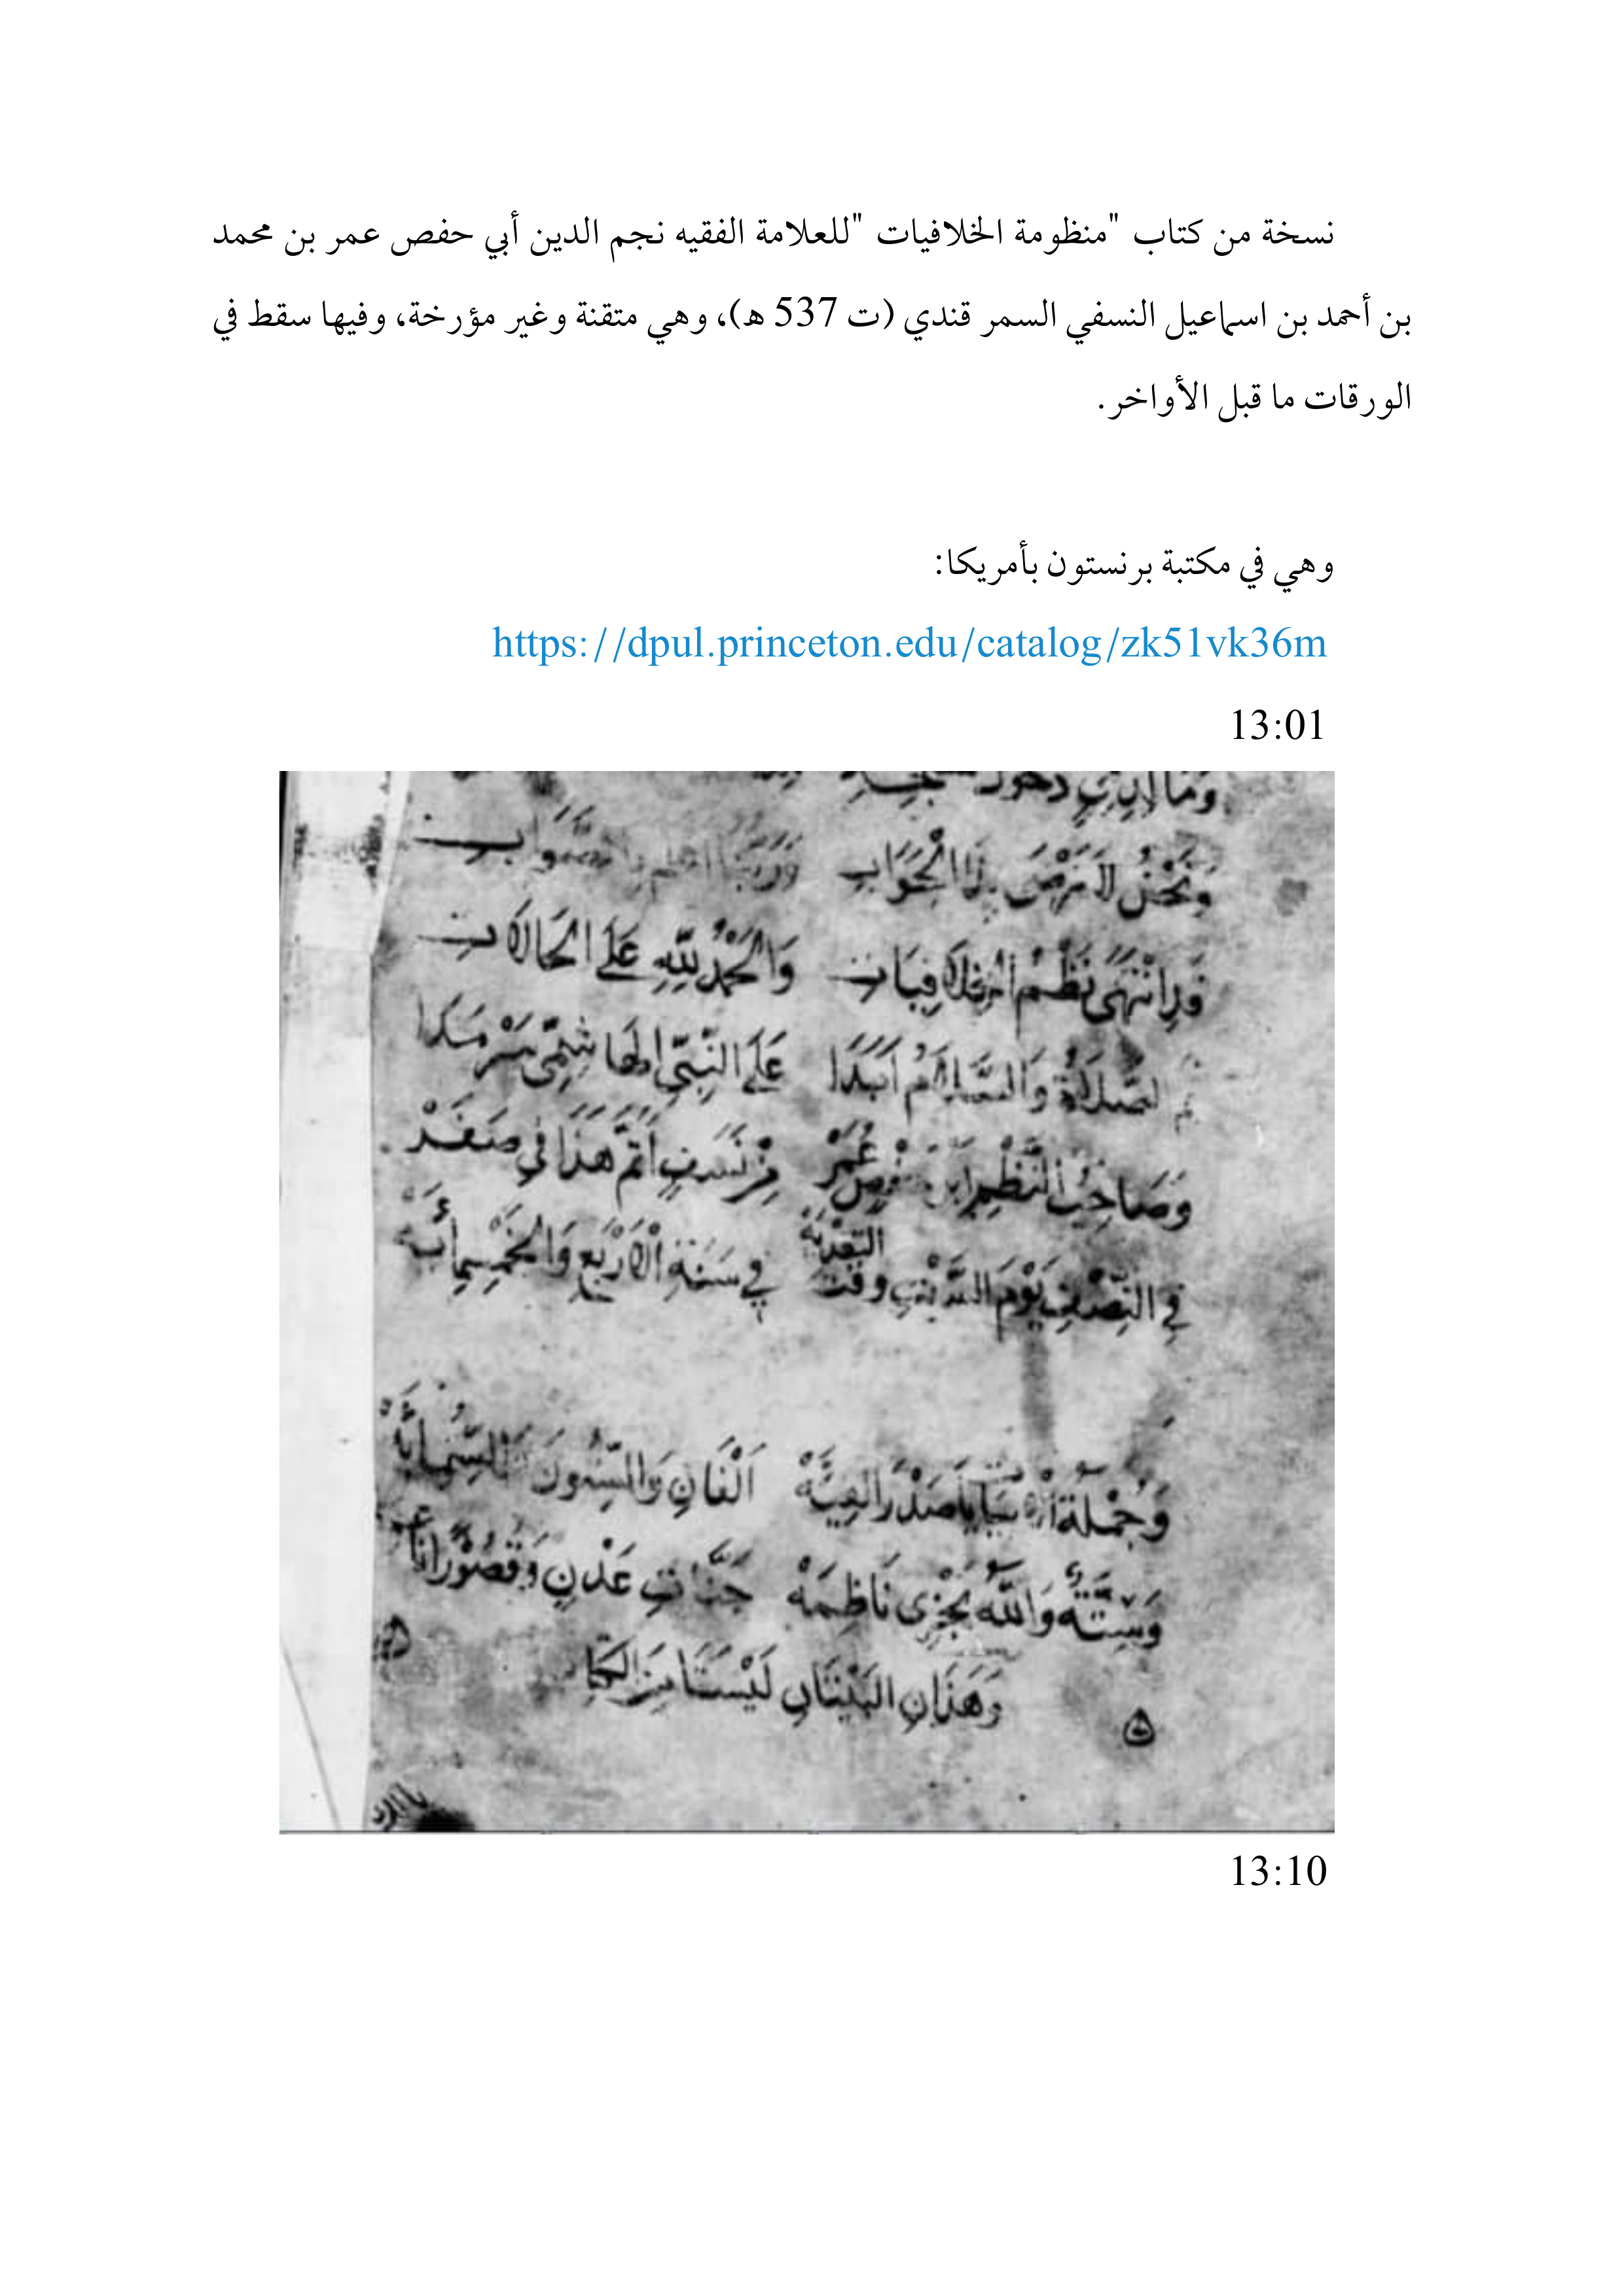 نسخة من كتاب "منظومة الخلافيات "للعلامة الفقيه نجم الدين أبي حفص عمر بن محمد
بن أحمد بن اسماعيل النسفي السمر قندي (ت 537 ه)، وهي متقنة وغير مؤرخة، وفيها سقط في
الورقات ما قبل الأواخر.
وهي في مكتبة برنستون بأمريكا:
https://dpul.princeton.edu/catalog/zk51vk36m
13:01
وَنَحْنُ لَا نَرْضَى بِذَا الْجَوَابِ وَرَبُّنَا أعلم بالصَّوَابِ
قَدِ انْتَهَى نَظْمُ الْخِلَافِيَاتِ وَالْحَمْدُ لِلَّهِ عَلَى الْحَالَاتِ
ثم الصَّلَاةُ وَالسَّلَامُ أَبَدًا عَلَى النَّبِيِّ الْهَاشِمِيِّ سَرْمَدَا
وَصَاحِبُ النَّظْمِ عُمَرْ مِنْ نَسَفٍ أَتَمَّ هَذَا فِي صَفَرْ
فِي النِّصْفِ يَوْمَ السَّبْتِ وَقْتَ فِي سَنَةِ الْأَرْبَعِ وَالْخَمْسِمِائَةْ
وَجُمْلَةُ صَدْرَ أَلْفَانِ وَالسِّتُّونَ
وَسِتَّةٌ وَاللَّهُ يَجْزِي نَاظِمَهْ جَنَّاتِ عَدْنٍ وَقُصُورًا
وَهَذَانِ الْبَيْتَانِ لَيْسَتَا مِنَ الْكتاب
13:10